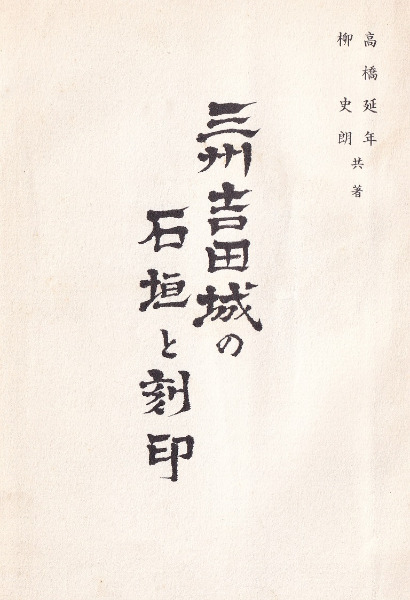 高橋延年
柳史朗
共著
三州吉田城の
石垣と刻印